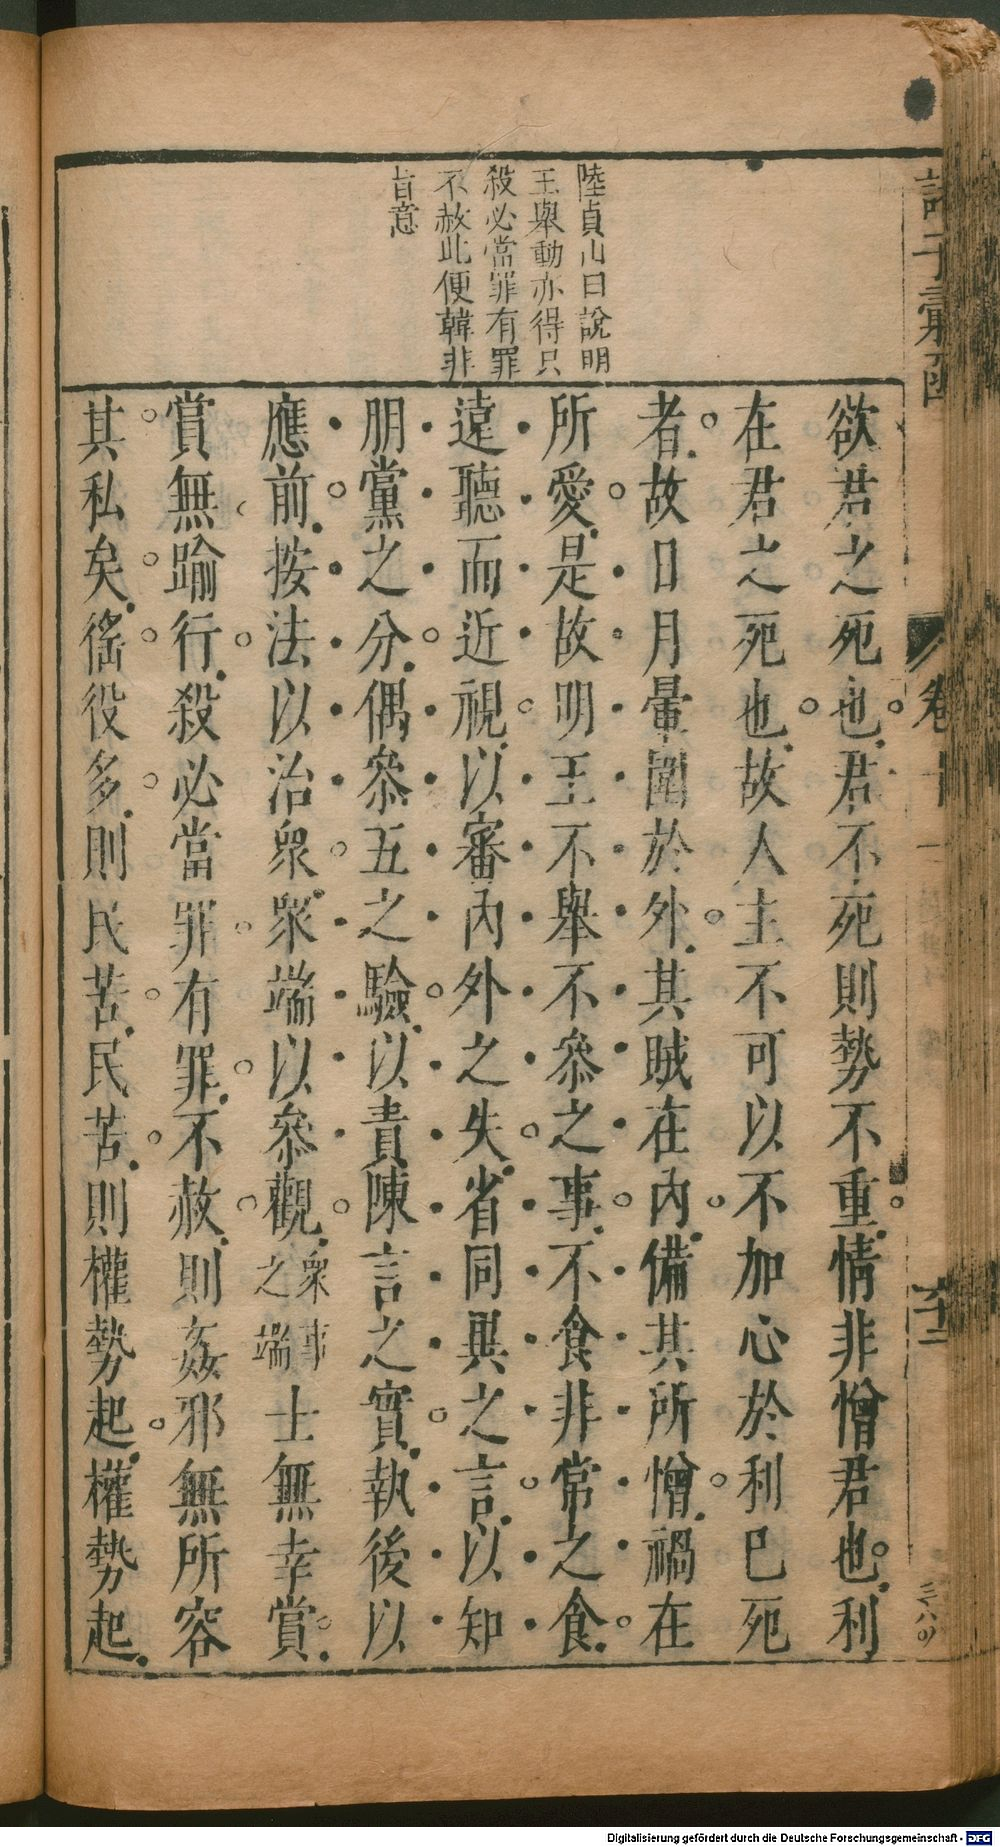 陸貞山曰說明
王舉動亦得只
殺必當罪有罪
不赦此便韓非
旨意
欲君之死也君不死則勢不重情非憎君也利
在君之死也故人主不可以不加心於利已死
者故日月暈圍於外其賊在內備其所憎禍在
所愛是故明王不舉不叅之事不食非常之食
遠聽而近視以審內外之失省同異之言以知
朋黨之分偶叅五之驗以責陳言之實執後以
應前按法以治衆衆端以叅觀衆事之端士無幸賞
賞無踰行殺必當罪有罪不赦則姦邪無所容
其私矣徭役多則民苦民苦則權勢起權勢起
卷十
六十二
Digitalisierung gefördert durch die Deutsche Forschungsgemeinschaft - DFG